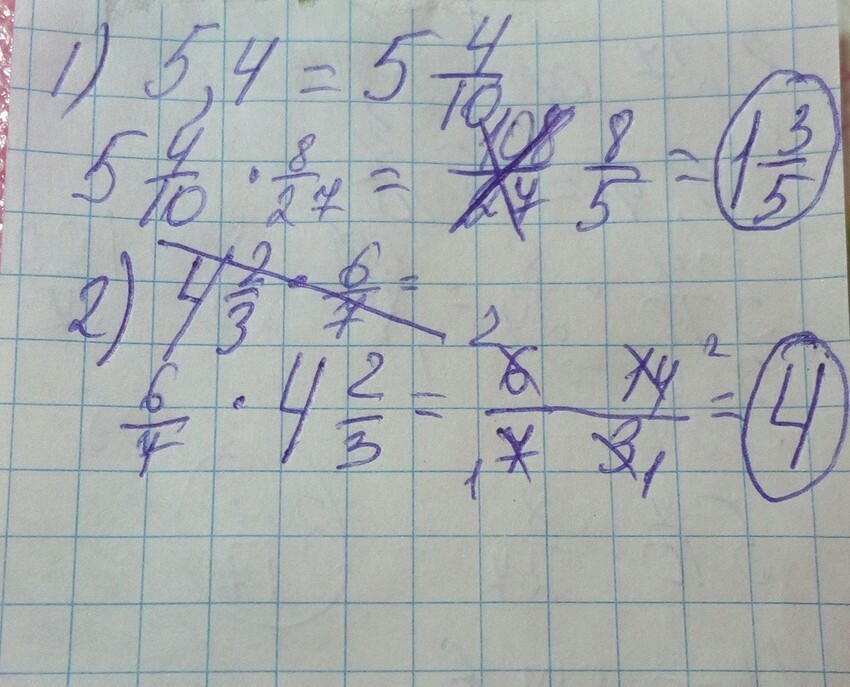 1) 5,4 = 5 4/10
5 4/10 · 8/27 = 108/27 8/5 = 1 3/5
2) 4 2/3 · 6/7 =
6/7 · 4 2/3 = 6 14 / 7 3 2 2 1 1 = 4